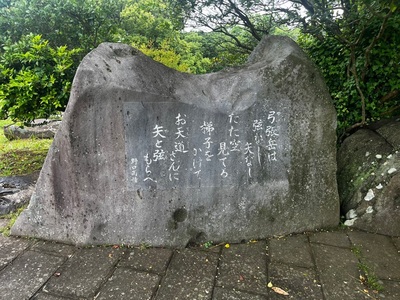 弓張岳は
弦なし 矢なし
ただ空 見てる
梯子を かけて
お天道さんに
矢と弦 もらへ
野口雨情